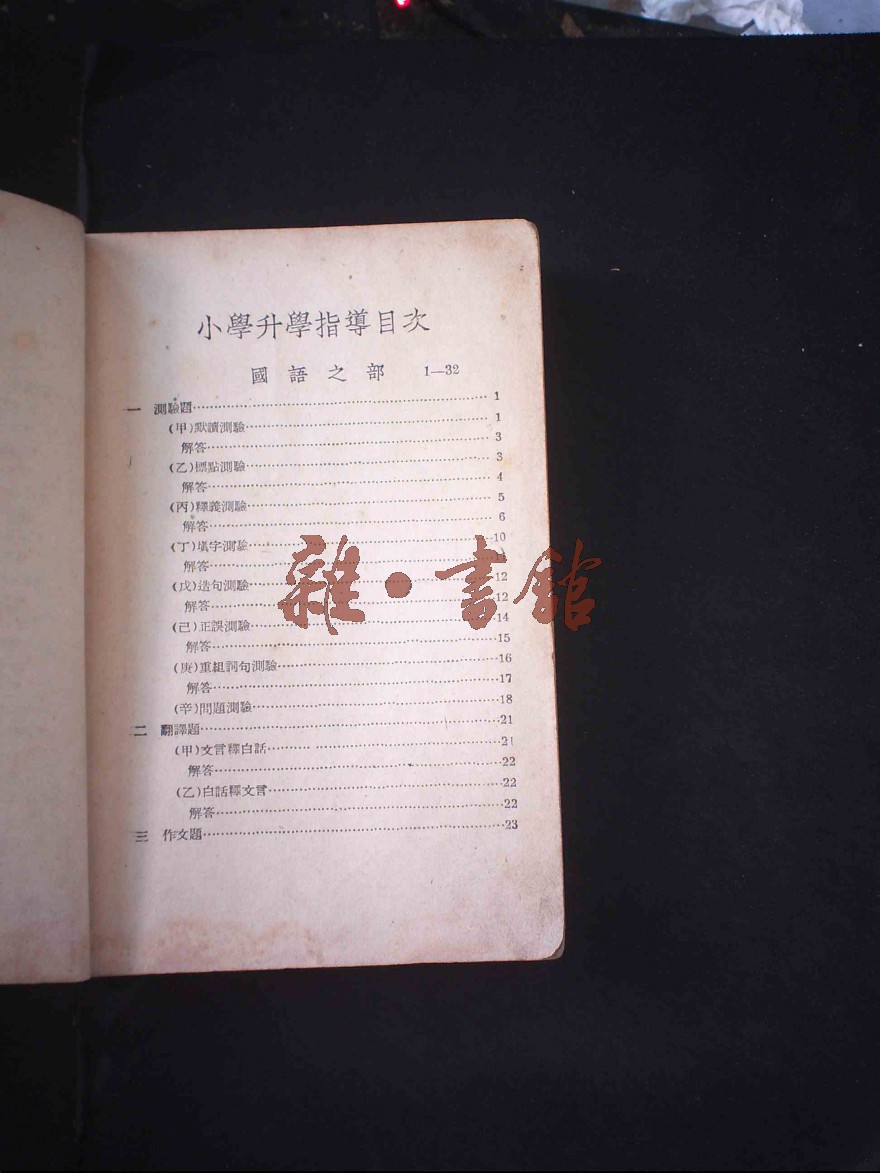 小學升學指導目次
國語之部 1—32
一 測驗題……1
(甲)默讀測驗……1
解答……3
(乙)標點測驗……3
解答……4
(丙)釋義測驗……5
解答……6
(丁)塡字測驗……10
解答……11
(戊)造句測驗……12
解答……12
(己)正誤測驗……14
解答……15
(庚)重組詞句測驗……16
解答……17
(辛)問題測驗……18
二 翻譯題……21
(甲)文言釋白話……21
解答……22
(乙)白話釋文言……22
解答……22
三 作文題……23
雜·書館